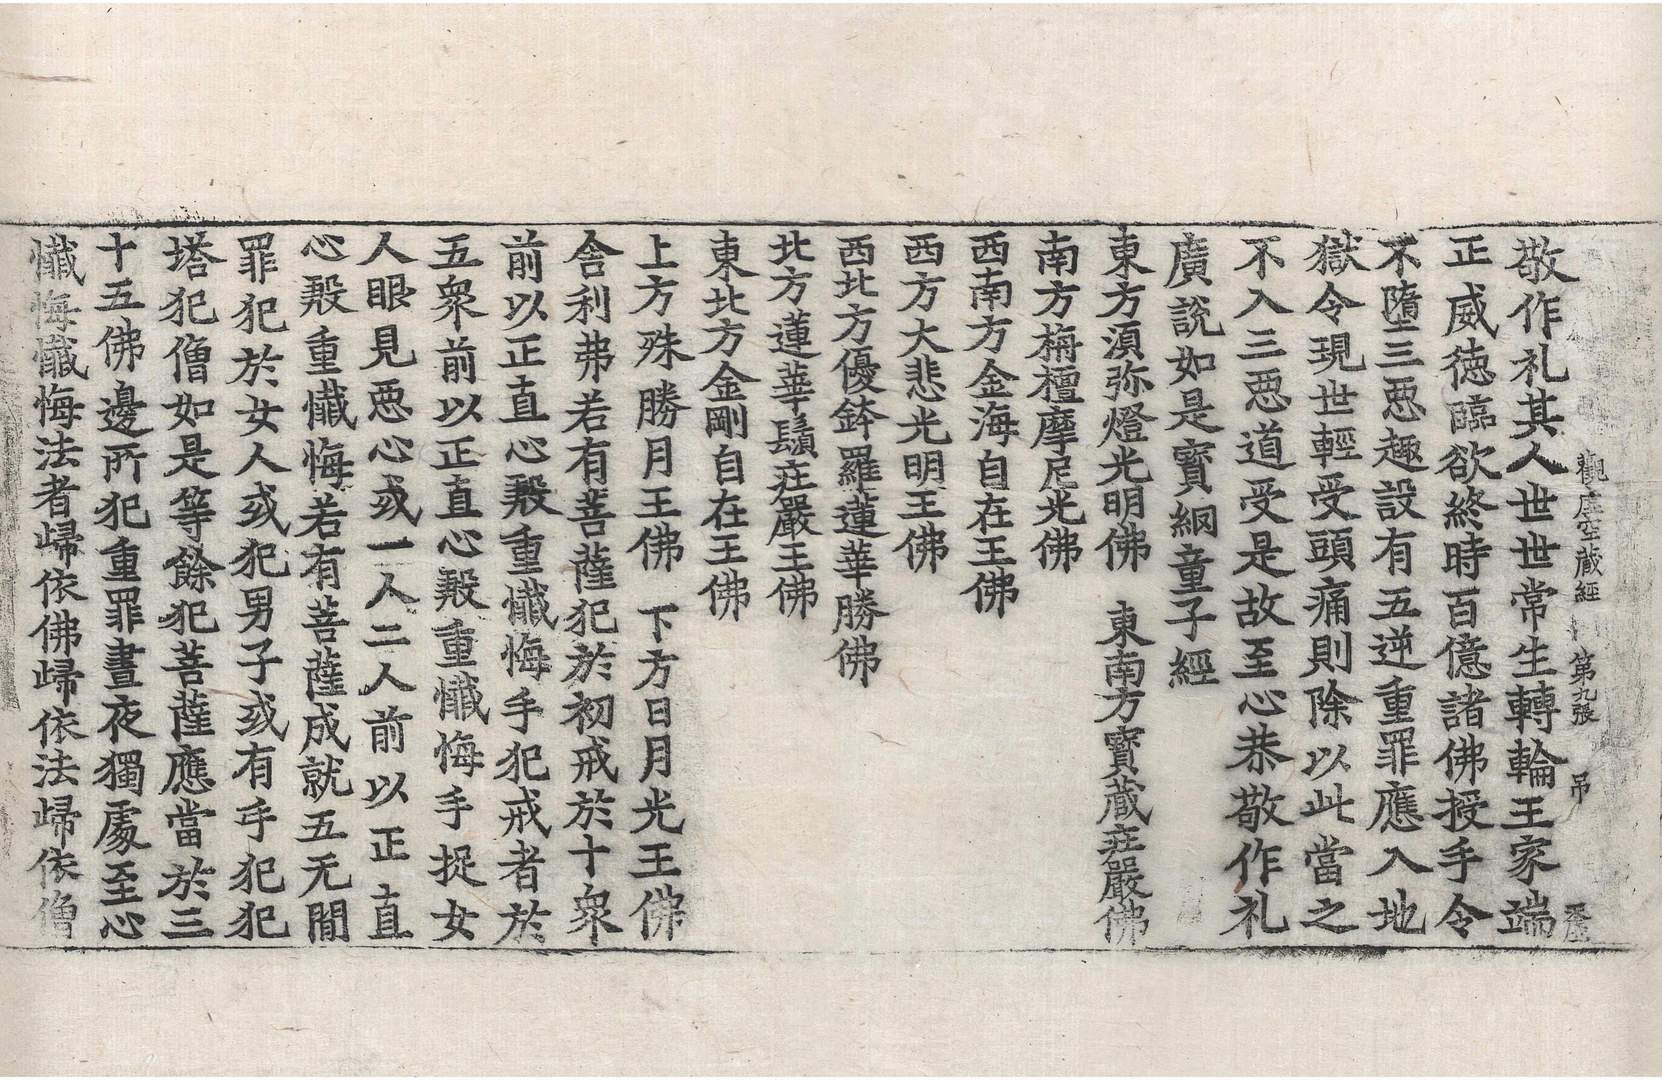 觀虛空藏經 第九張 吊
敬作礼其人世世常生轉輪王家端
正威德臨欲終時百億諸佛授手令
不墮三惡趣設有五逆重罪應入地
獄令現世輕受頭痛則除以此當之
不入三惡道受是故至心恭敬作礼
廣說如是寶網童子經
東方湏弥燈光明佛 東南方寶藏莊嚴佛
南方栴檀摩尼光佛
西南方金海自在王佛
西方大悲光明王佛
西北方優鉢羅蓮華勝佛
北方蓮華鬚莊嚴王佛
東北方金剛自在王佛
上方殊勝月王佛 下方日月光王佛
舍利弗若有菩薩犯於初戒於十衆
前以正直心殷重懺悔手犯戒者於
五衆前以正直心殷重懺悔手捉女
人眼見惡心或一人二人前以正直
心殷重懺悔若有菩薩成就五无閒
罪犯於女人或犯男子或有手犯犯
塔犯僧如是等餘犯菩薩應當於三
十五佛邊所犯重罪晝夜獨處至心
懺悔懺悔法者歸依佛歸依法歸依僧